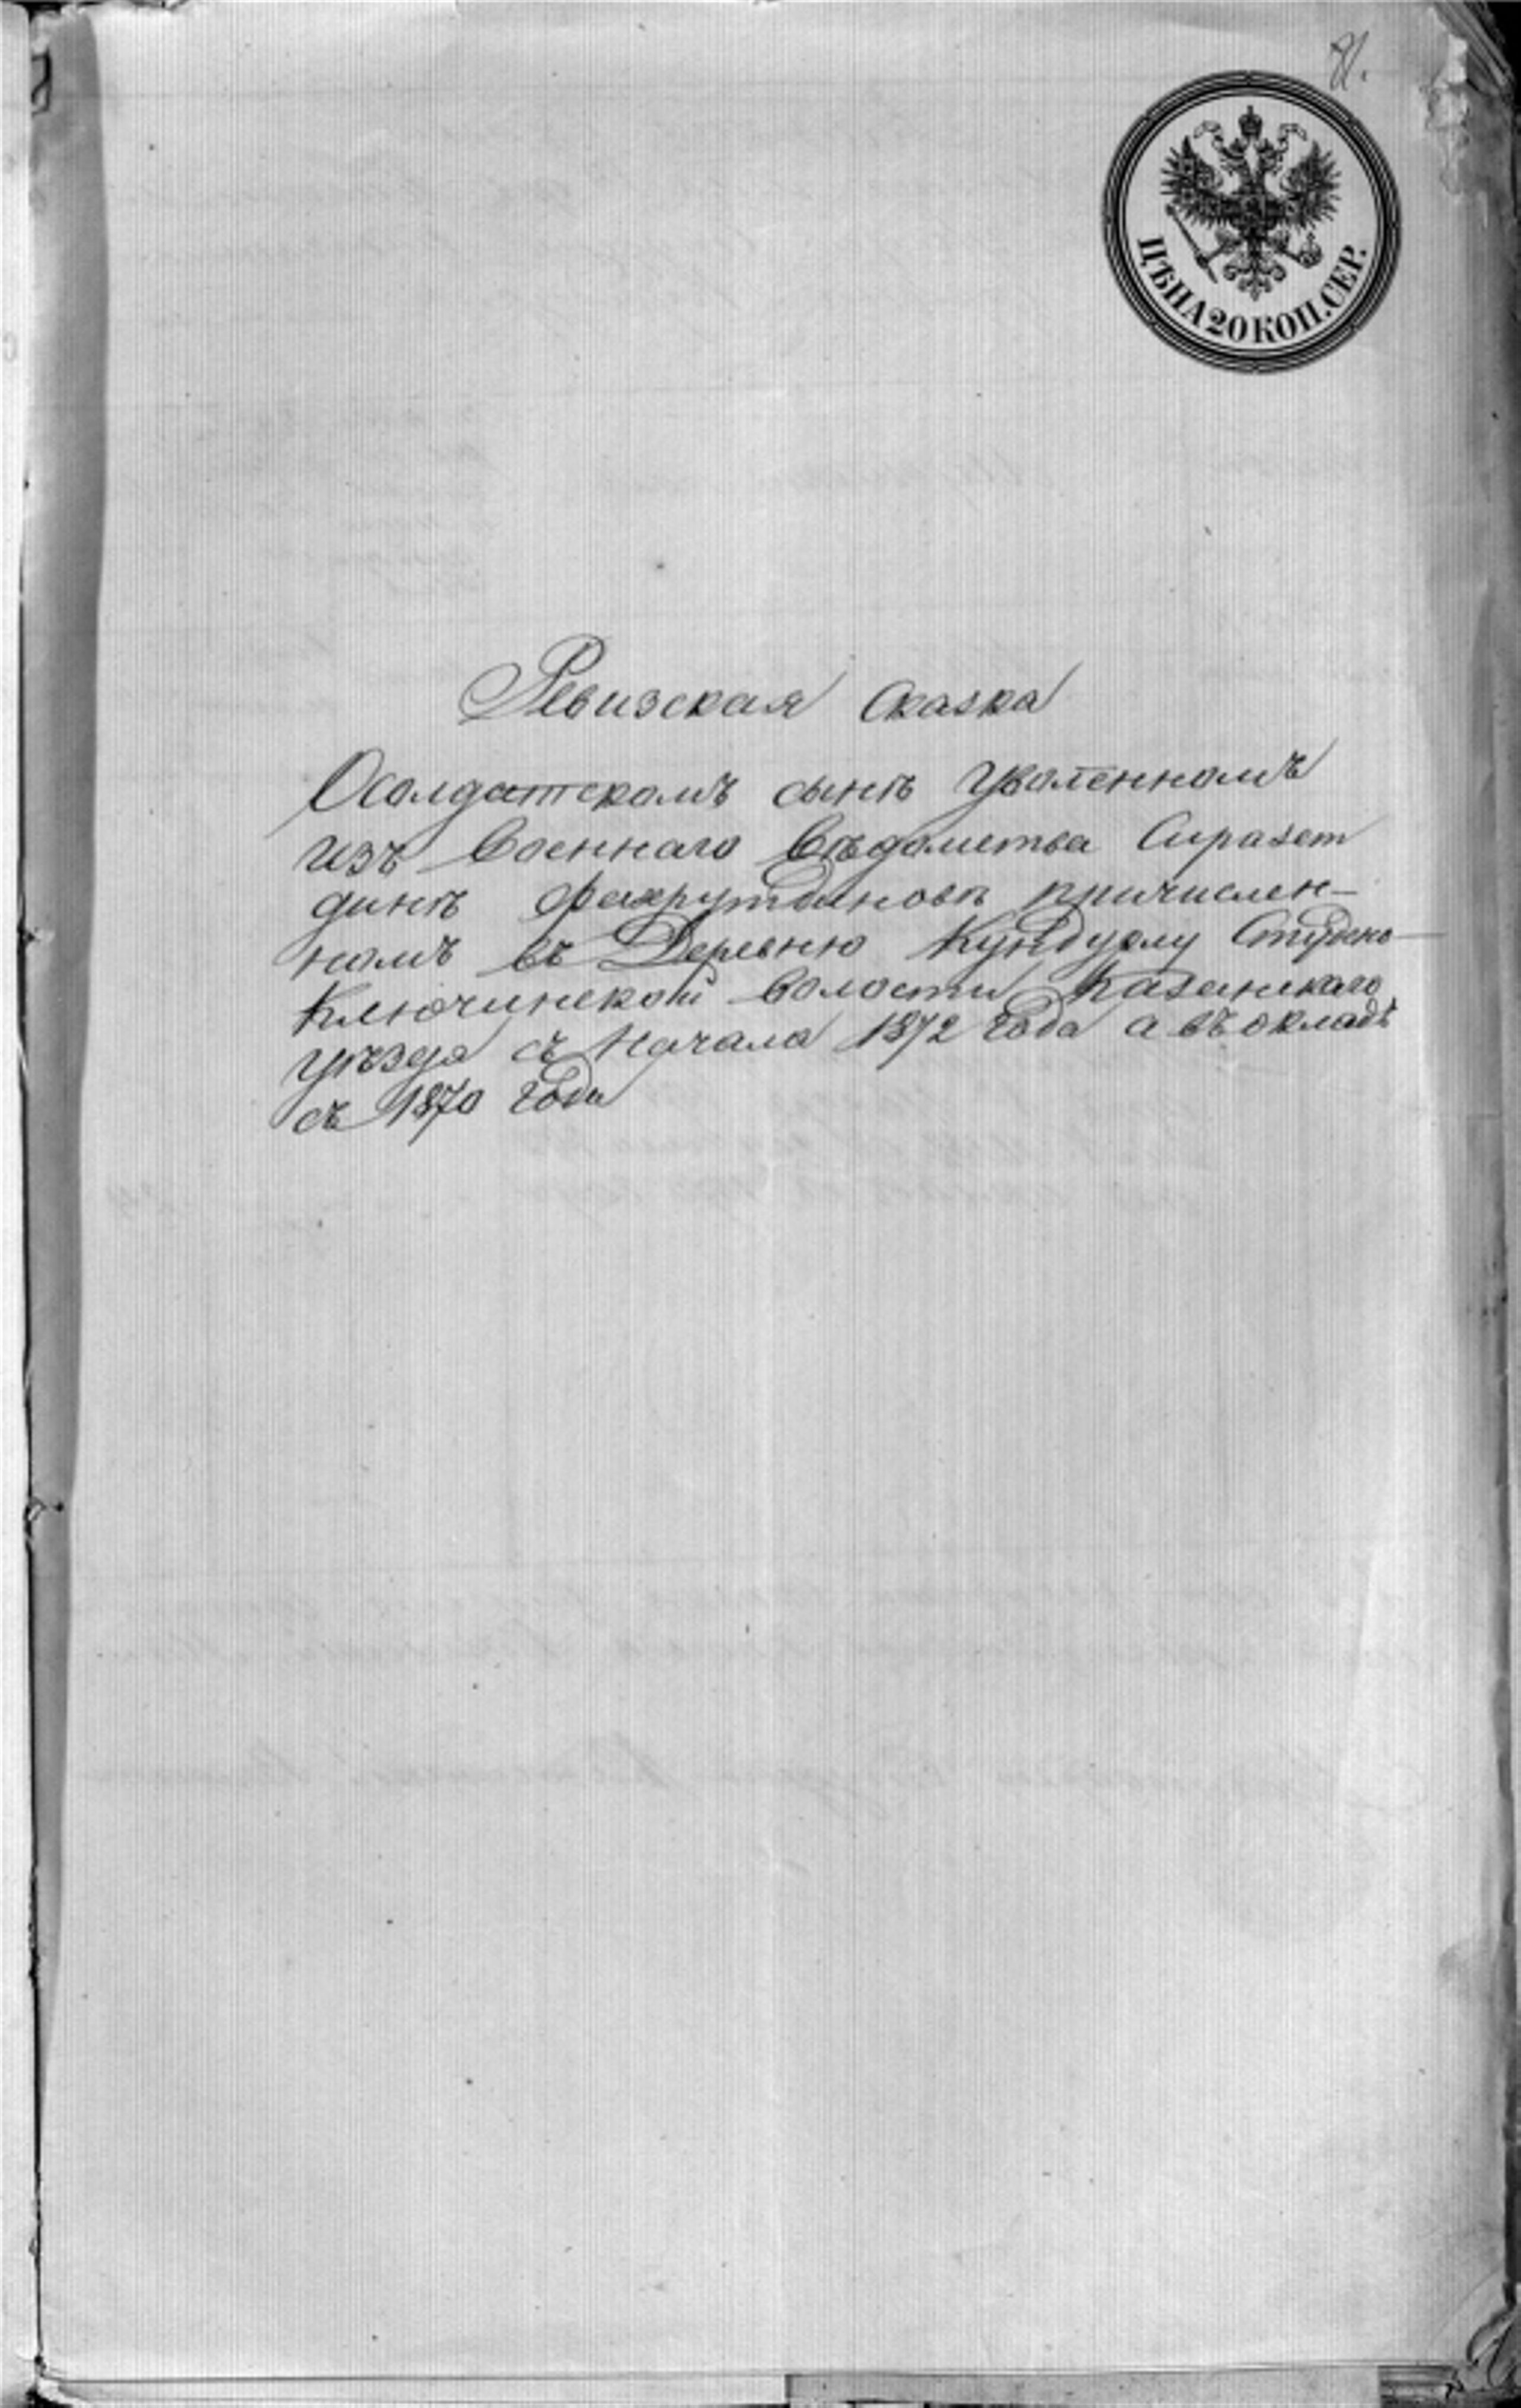 81.
ЦѢНА 20 КОП. СЕР.
Ревизская сказка
О солдатскомъ сынѣ уволенномъ
изъ военнаго вѣдомства Сиразет
динѣ Фахрутдиновѣ причислен-
номъ въ деревню Кундурлу Студено-
Ключинской волости Казанскаго
уѣзда съ начала 1872 года а въ окладѣ
съ 1870 года